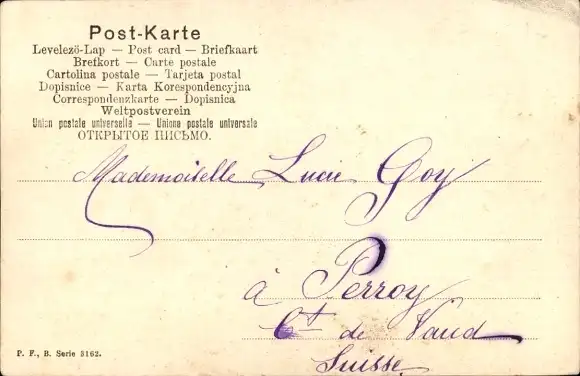 Post-Karte
Levelezö-Lap — Post card — Briefkaart
Brefkort — Carte postale
Cartolina postale — Tarjeta postal
Dopisnice — Karta Korespondencyjna
Correspondenzkarte — Dopisnica
Weltpostverein
Union postale universelle — Unione postale universale
ОТКРЫТОЕ ПИСЬМО.
Mademoiselle Lucie Goy
à Perroy
Ct de Vaud
Suisse
P. F., B. Serie 3162.